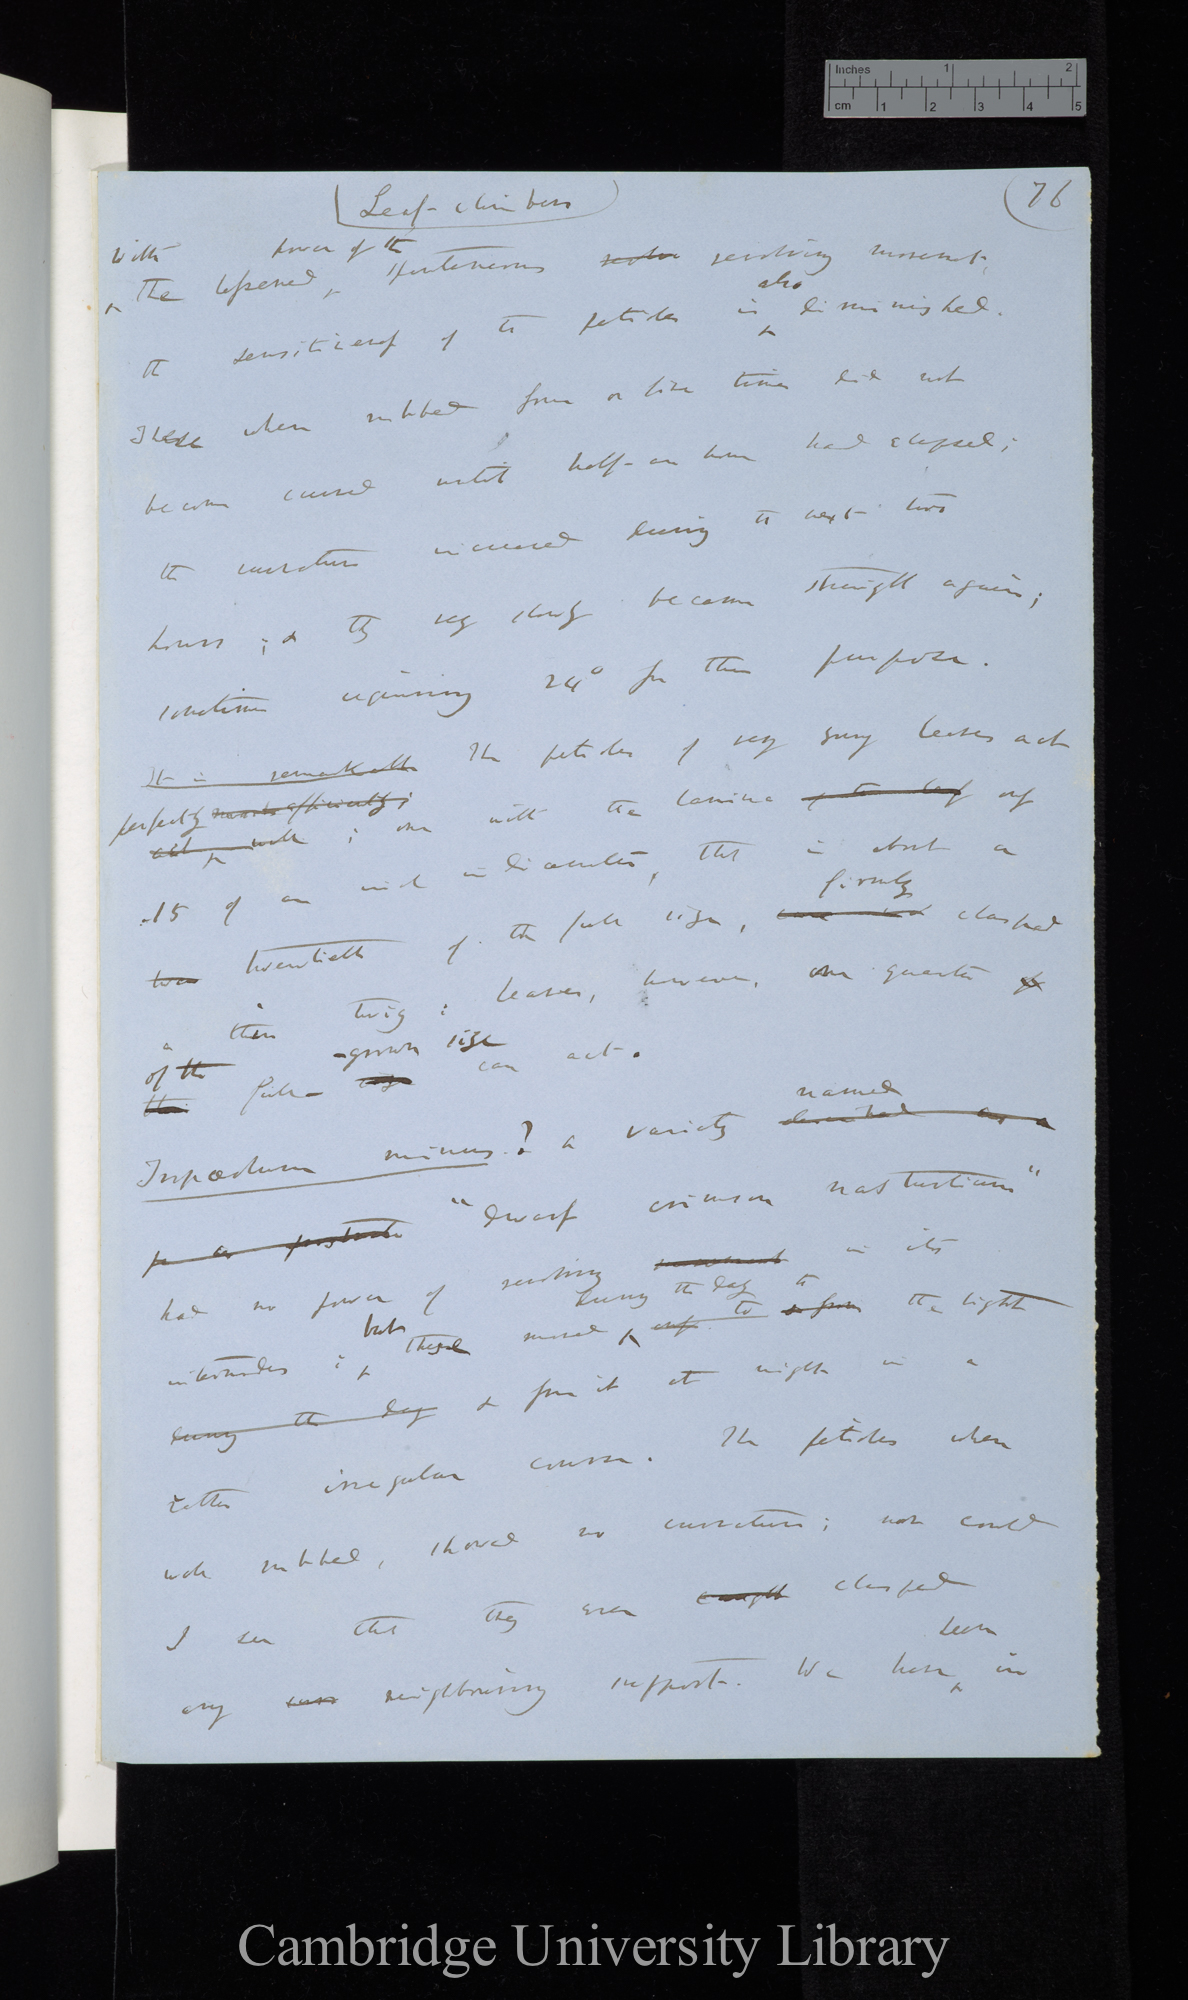 Inches 1 2
cm 1 2 3 4 5
Leaf-climbers
76
With power of the
The lessened, spontaneous revolving movement,
also
the sensitiveness of the petioles is diminished.
These when rubbed four or five times did not
become curved until half-an hour had elapsed;
the curvature increased during the next two
hours; & they very slowly became straight again;
sometimes requiring 24° for this purpose.
It is remarkable The petioles of very young leaves act
perfectly efficiently;
act well; one with the lamina of the leaf only
.15 of an inch in diameter, that is about a
firmly
twentieth of the full size, clasped
a thin twig: leaves, however, one quarter of
of the -grown size
this full- can act.
named
Tropæolum minus.? a variety described as a
"dwarf crimson nasturtium"
had no power of revolving movement in its
during the day to
but
internodes; these moved to & from the light
during the day & from it at night in a
rather irregular course. The petioles when
well rubbed, showed no curvature; nor could
I see that they ever caught clasped
seen
any neighbouring support. We have in
Cambridge University Library